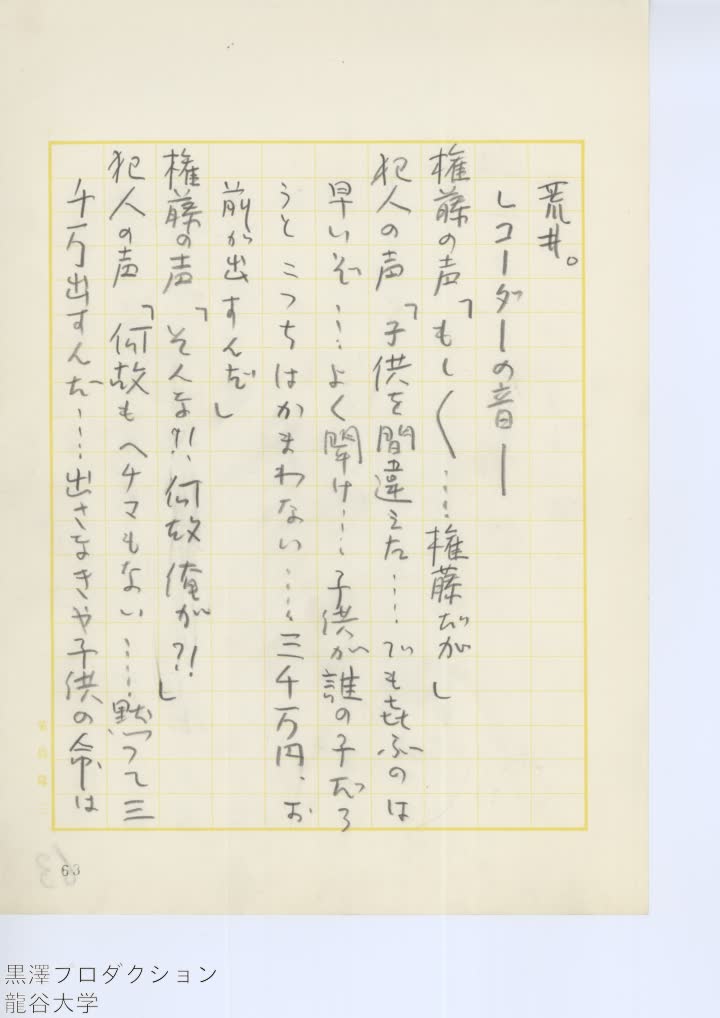 荒井。
レコーダーの音ー
権藤の声「もし〱……権藤だが」
犯人の声「子供を間違えた……でも喜ぶのは
早いぞ……よく聞け……子供が誰の子だろ
うとこつちはかまわない……三千万円、お
前が出すんだ」
権藤の声「そんな?!何故俺が?!」
犯人の声「何故もヘチマもない……黙つて三
千万出すんだ……出さなきや子供の命は
63
黒澤プロダクション
龍谷大学